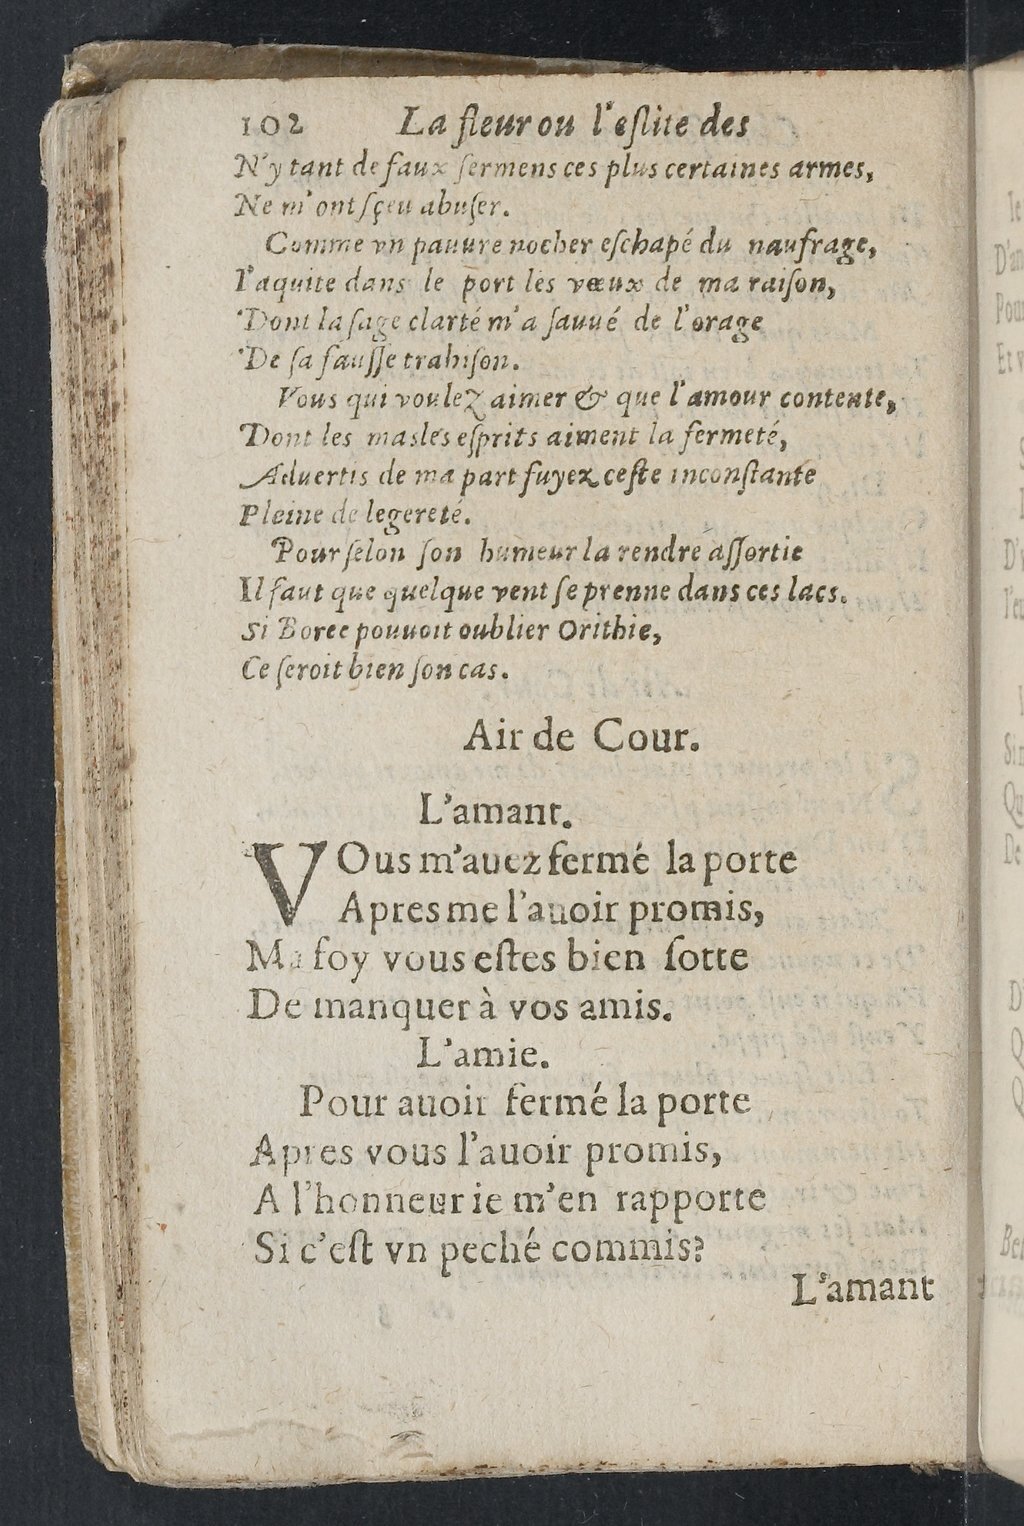 102 La fleur ou l'eſlite des
N'y tant de faux ſermens ces plus certaines armes,
Ne m'ont ſçeu abuſer.
Comme vn pauure nocher eſchapé du naufrage,
I'aquite dans le port les vœux de ma raiſon,
Dont la ſage clarté m'a ſauué de l'orage
De ſa fauſſe trahiſon.
Vous qui voulez aimer & que l'amour contente,
Dont les masles eſprits aiment la fermeté,
Aduertis de ma part fuyez ceſte inconſtante
Pleine de legereté.
Pour ſelon ſon humeur la rendre aſſortie
Il faut que quelque vent ſe prenne dans ces lacs.
Si Boree pouuoit oublier Orithie,
Ce ſeroit bien ſon cas.
Air de Cour.
L'amant.
VOus m'auez fermé la porte
Apres me l'auoir promis,
Ma foy vous eſtes bien ſotte
De manquer à vos amis.
L'amie.
Pour auoir fermé la porte
Apres vous l'auoir promis,
A l'honneur ie m'en rapporte
Si c'eſt vn peché commis?
L'amant